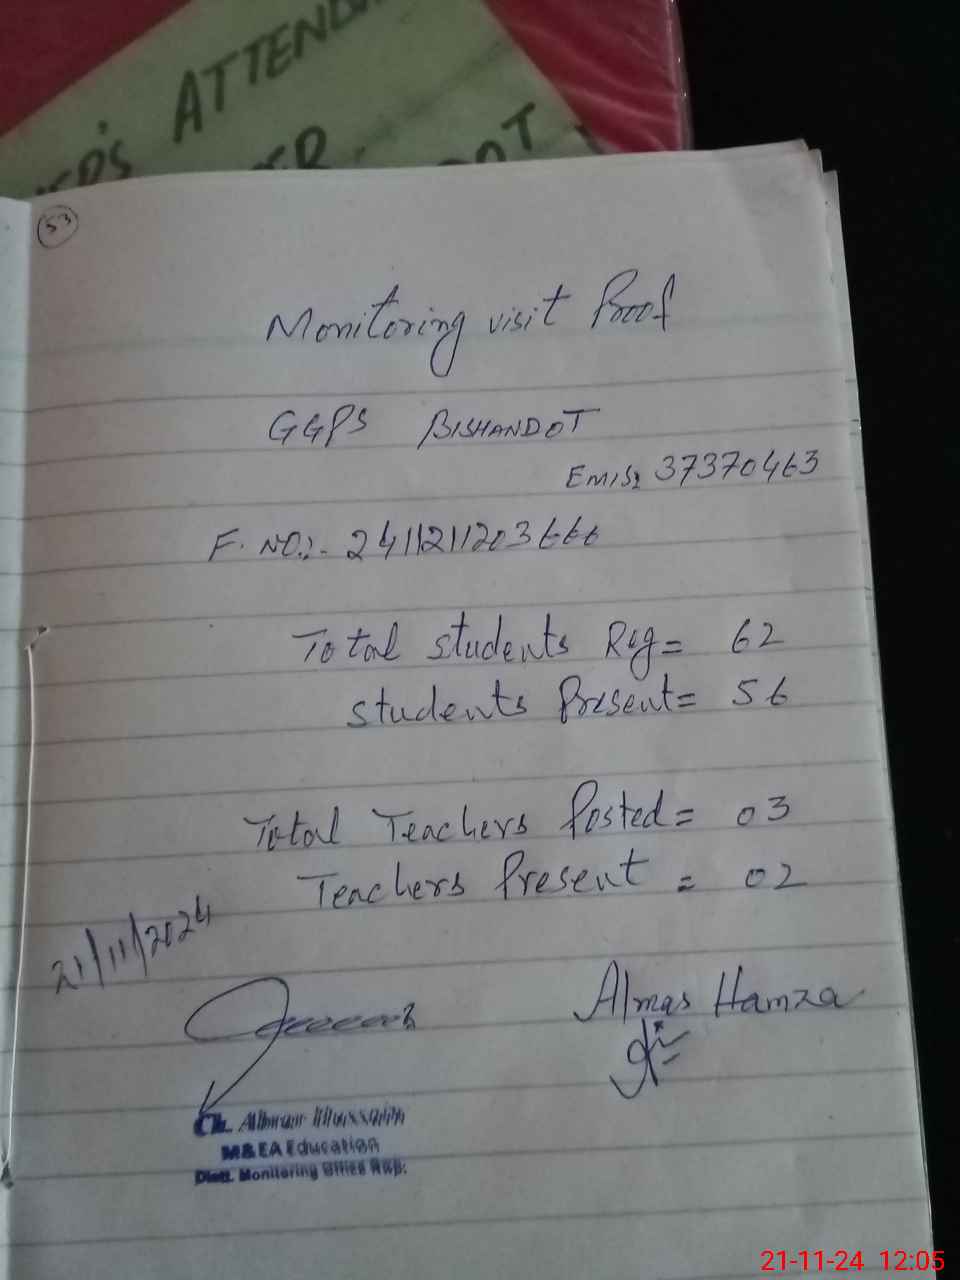 ATTENDA
DOT
53
Monitoring visit Proof
GGPS BISHANDOT
EMIS: 37370463
F. NO.:- 241121203666
Total students Reg = 62
students Present = 56
Total Teachers Posted = 03
Teachers Present = 02
21/11/2024
Almas Hamza
Ch. Hussain
M&EA Education
Distt. Monitoring Office Rwp.
21-11-24 12:05